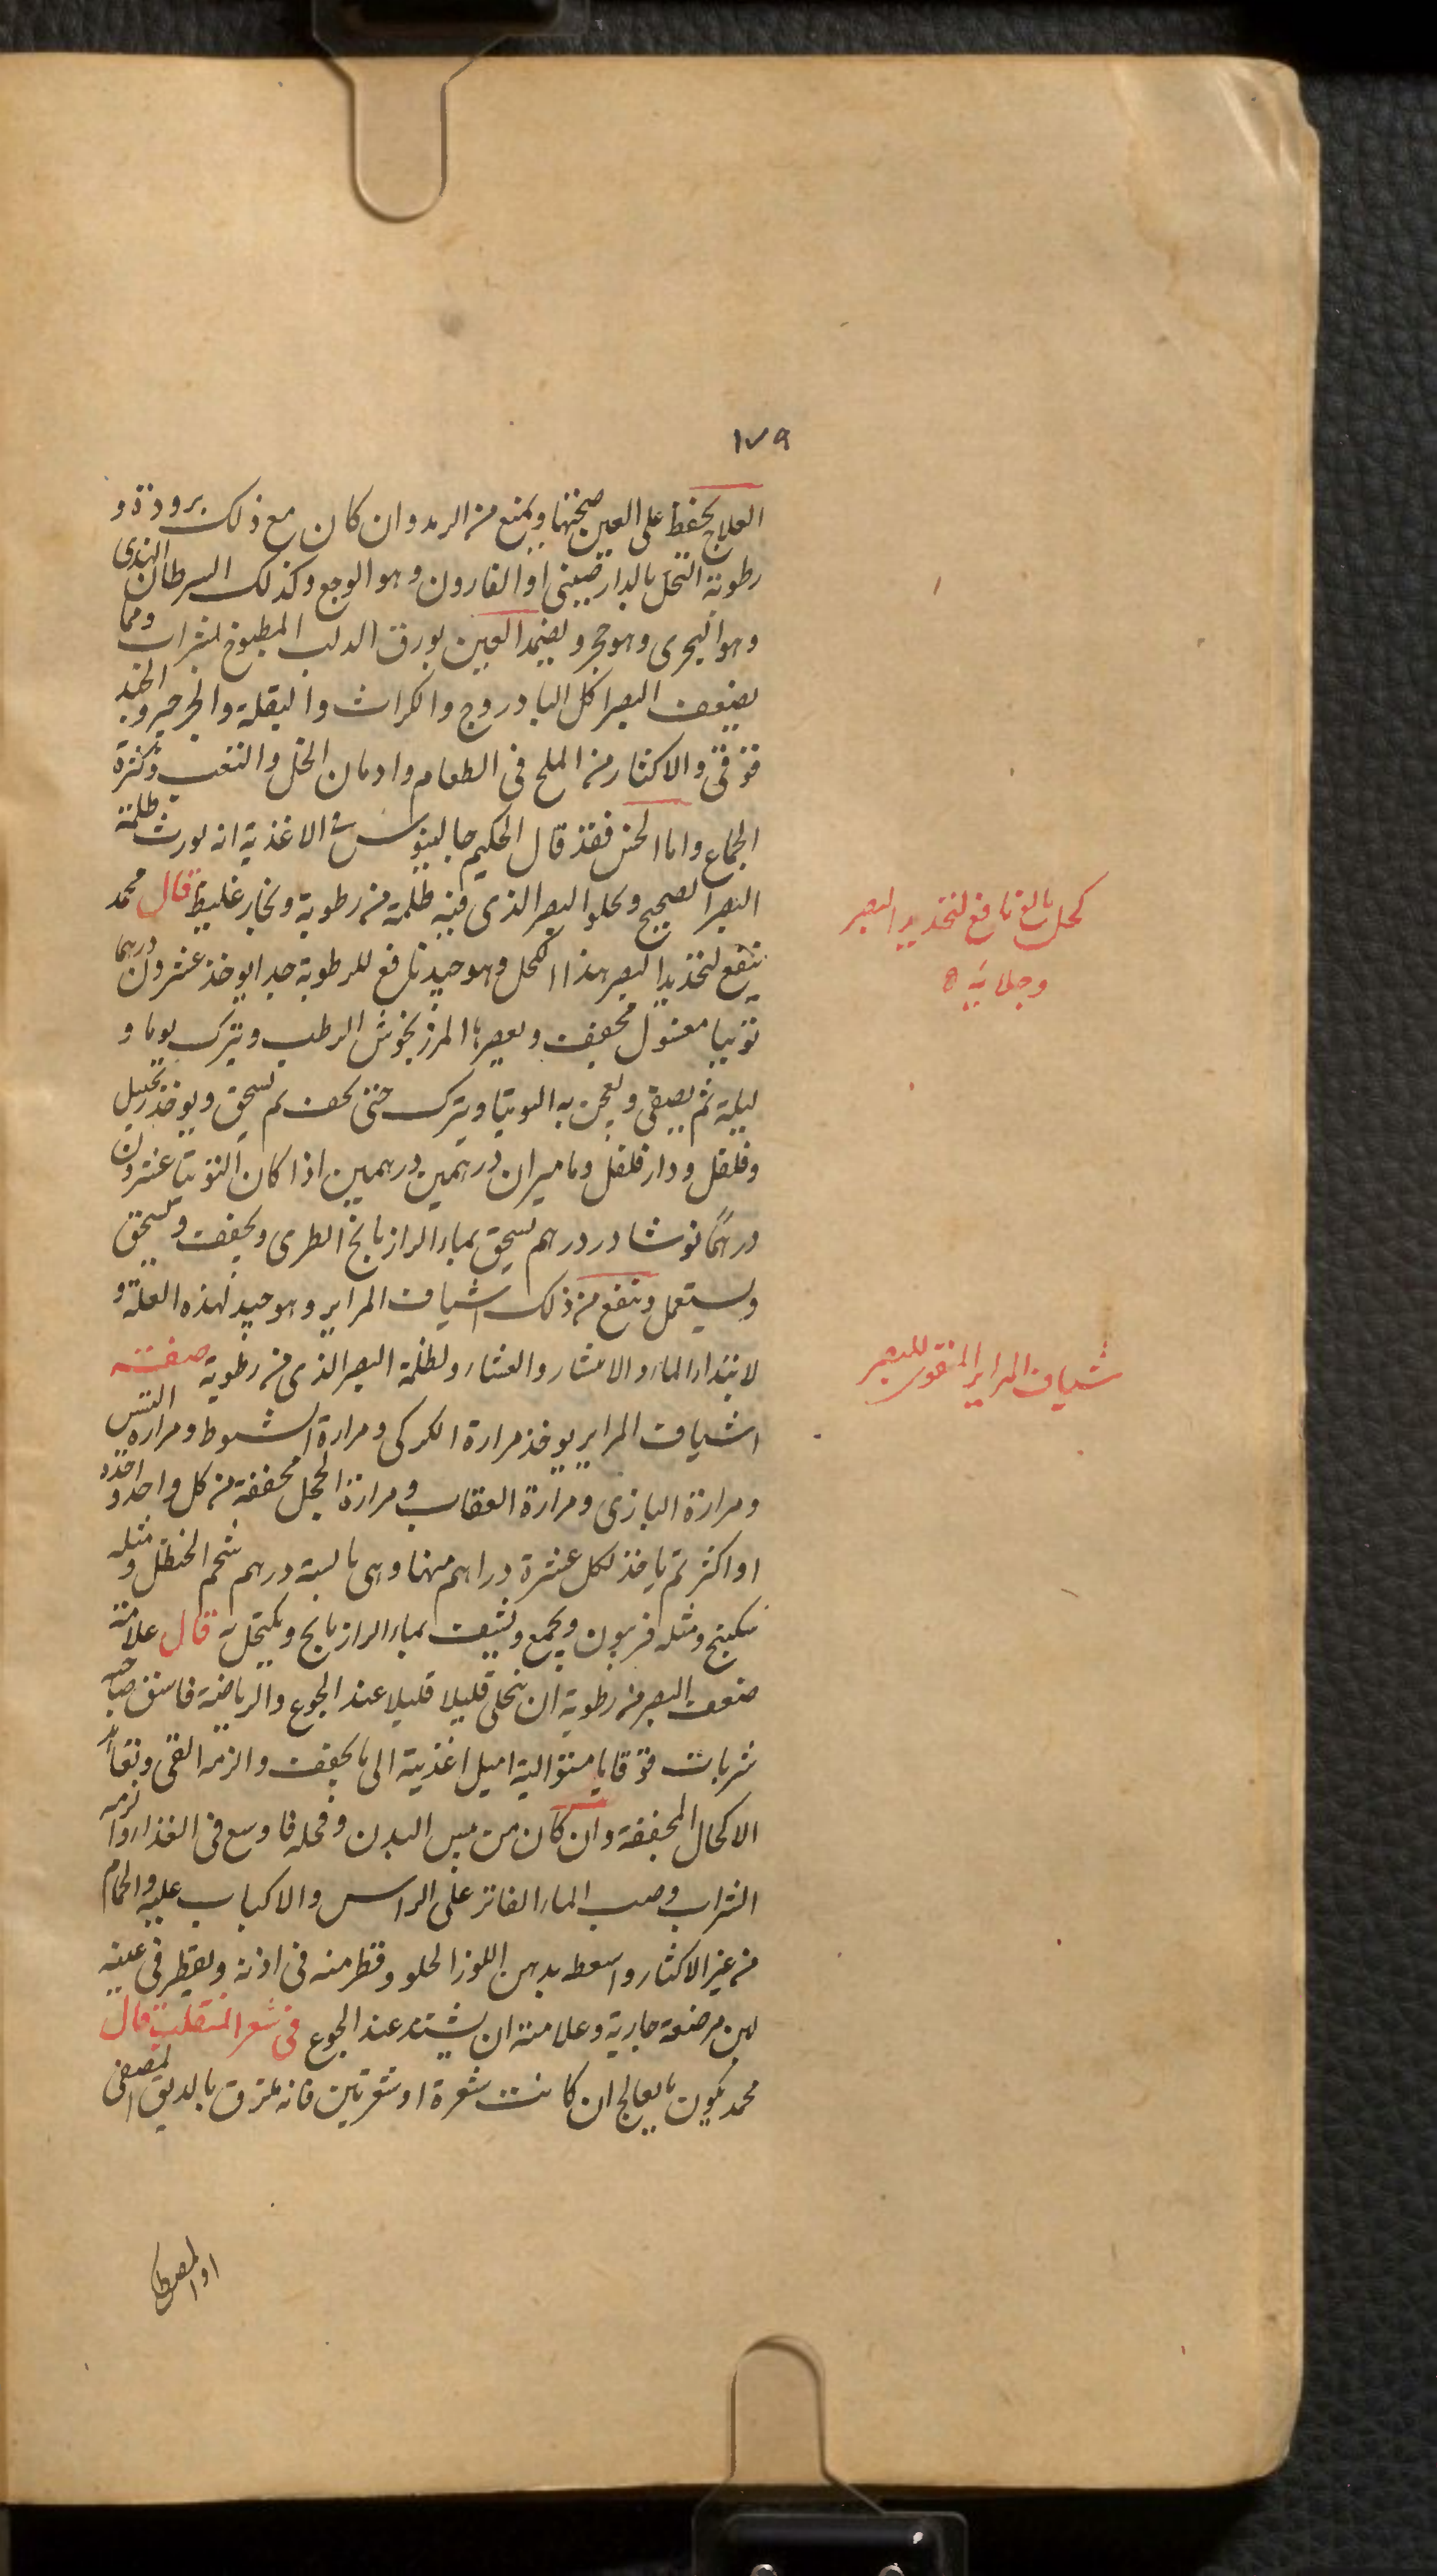 ١٧٩
العلاج يحفظ على العين صحتها ويمنع من الرمد وان كان مع ذلك برودة و
رطوبة اكتحل بالدارصينى او القارون وهو الوج وكذلك السرطان الهندى
وهو البحرى وهو حجر ويضمد العين بورق الدلب المطبوخ بشراب ومما
يضعف البصر اكل البادروج والكراث والبقلة والجرجير والخبد
قوقى والاكثار من الملح فى الطعام وادمان الخل والتعب وكثرة
الجماع واما الخس فقد قال الحكيم جالينوس فى الاغذية انه يورث ظلمة
البصر الصحيح ويجلو البصر الذى فيه ظلمة من رطوبة وبخار غليظ قال محمد
ينفع لتحديد البصر هذا الكحل وهو جيد نافع للرطوبة جدا يوخذ عشرون درهما
توتيا مغسول مجفف ويعصر ماء المرزنجوش الرطب ويترك يوما و
ليلة ثم يصفى ويعجن به التوتيا ويترك حتى يجف ثم يسحق ويوخذ زنجبيل
وفلفل ودار فلفل وماميران درهمين درهمين اذا كان التوتيا عشرون
درهماً نوشادر درهم يسحق بماء الرازيانج الطرى ويجفف ويسحق
ويستعمل وينفع من ذلك اشياف المراير وهو جيد لهذه العلة و
لابتداء الماء والانتشار والعشا ولظلمة البصر الذى من رطوبة صفة
اشياف المراير يوخذ مرارة الكركى ومرارة الشبوط ومرارة التيس
ومرارة البازى ومرارة العقاب ومرارة الحجل مجففة من كل واحد واحدة
او اكثر ثم ياخذ لكل عشرة دراهم منها وهى يابسة درهم شحم الحنظل ومثله
سكبينج ومثله فربيون ويجمع ويشيف بماء الرازيانج ويكتحل به قال علامة
ضعف البصر من رطوبة ان ينحل قليلا قليلا عند الجوع والرياضة فاسق صاحبه
شربات قوقايا متوالية اميل اغذيته الى ما يجفف والزمه القى وتعاهد
الاكحال المجففة وان كان من يبس البدن وقحله فاوسع فى الغذاء والزمه
الشراب وصب الماء الفاتر على الراس والاكباب عليه والحمام
من غير الاكثار واسعط بدهن اللوز الحلو وقطر منه فى اذنه ويقطر فى عينه
لبن مرضعة جارية وعلامته ان يشتد عند الجوع فى شعر المنقلب قال
محمد يكون ما يعالج ان كانت شعرة او شعرتين فانه يلزق بالدبق المصفى
او المصطكى
كحل بالغ نافع لتحديد البصر
وجلايه
شياف المراير المقوى للبصر